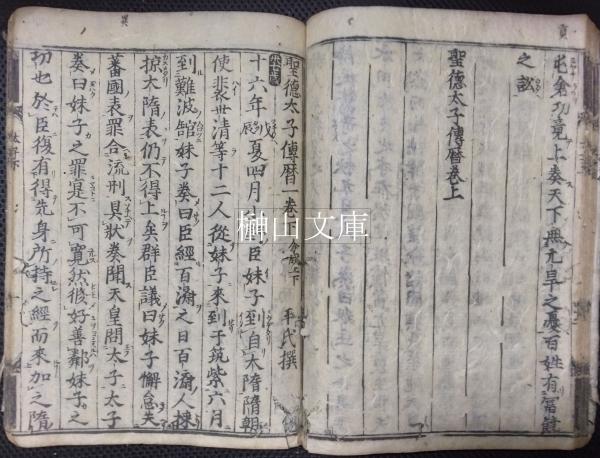 屯倉功竟上奏天下無亢旱之憂百姓有富饒
之訟
聖德太子傳曆卷上
聖德太子傳曆一卷 分成上下 平氏撰
十六年戊辰夏四月臣妹子到自大隋隋朝
使裴世清等十二人從妹子來到于筑紫六月
到難波舘妹子奏曰臣經百濟之日百濟人揀
掠大隋表仍不得上矣群臣議曰妹子懈怠失
蕃國表罪合流刑具狀奏聞天皇問太子太子
奏曰妹子之罪寔不可寬然後好善鄰妹子之
功也於臣復有得先身所持之經而來加之隋
榊山文庫